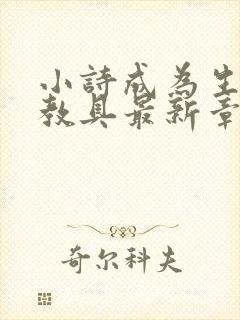 小詩成為生
教具最新章
奇尔科夫